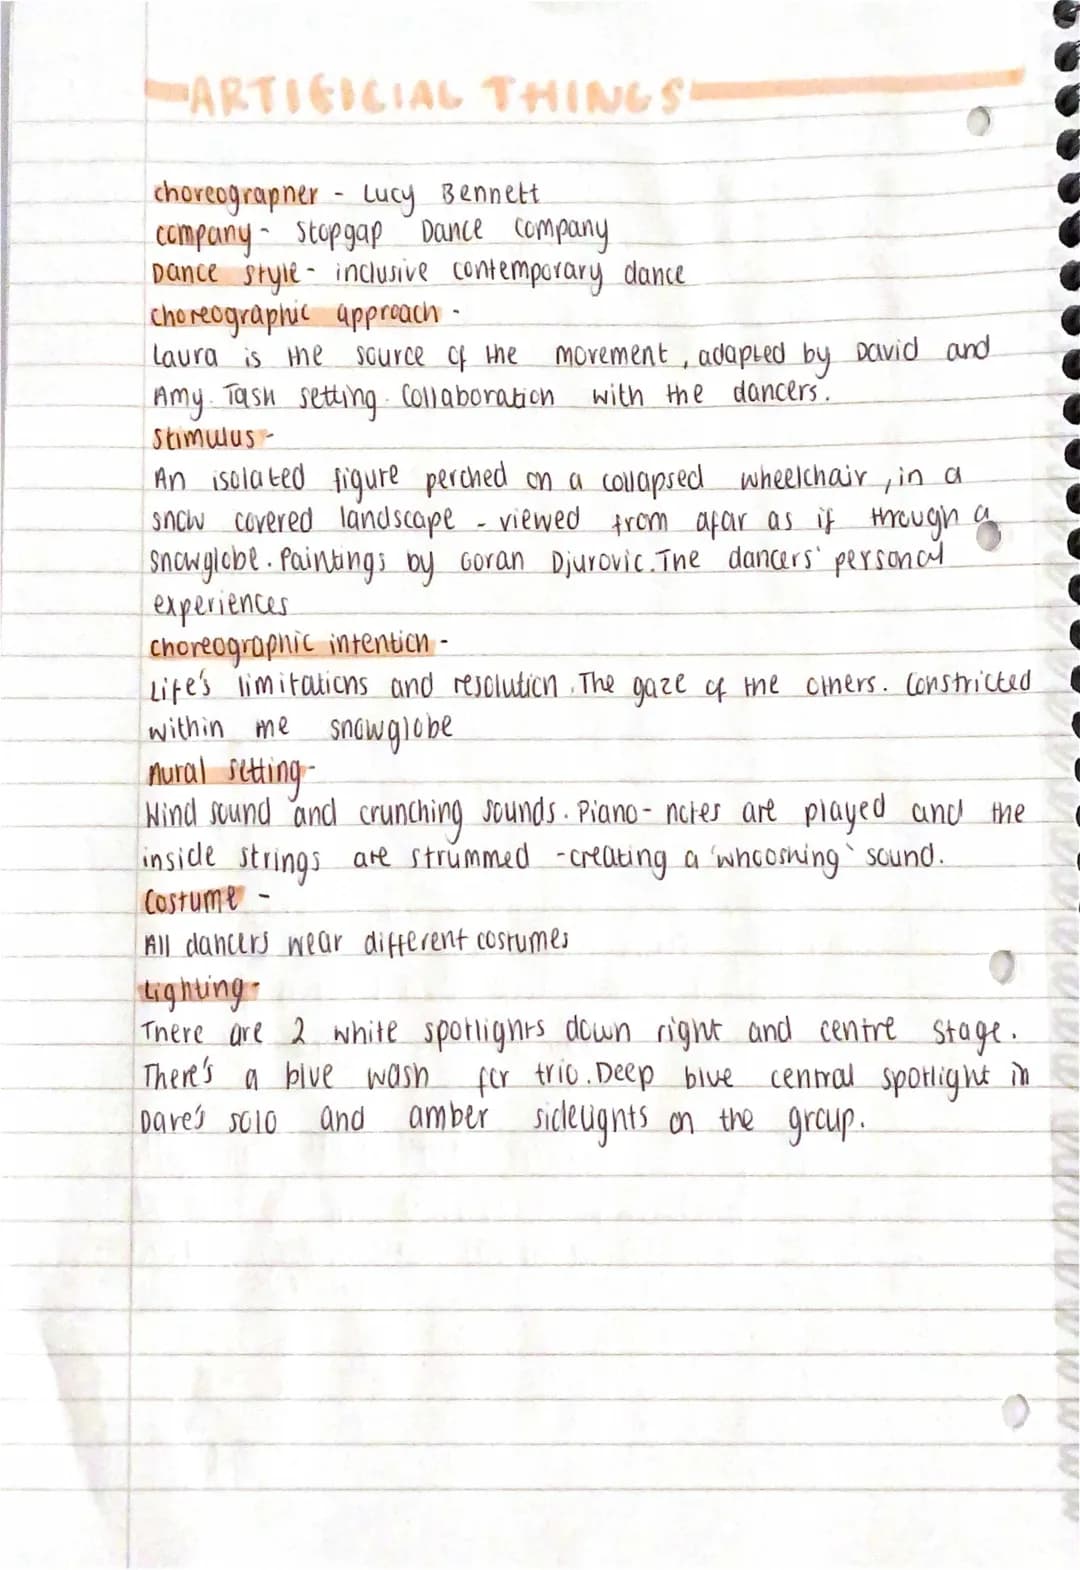 ARTIFICIAL THINGS
choreographer - Lucy Bennett
company - Stopgap Dance Company
Dance style - inclusive contemporary dance
choreographic approach -
Laura is the source of the movement, adapted by David and
Amy. Task setting. Collaboration with the dancers.
Stimulus -
An isolated figure perched on a collapsed wheelchair, in a
snow covered landscape - viewed from afar as if through a
snowglobe. Paintings by Goran Djurovic. The dancers' personal
experiences
choreographic intention -
Life's limitations and resolution. The gaze of the others. Constricted
within the snowglobe
Aural setting -
Wind sound and crunching sounds. Piano - notes are played and the
inside strings are strummed - creating a 'whooshing' sound.
Costume -
All dancers wear different costumes
Lighting -
There are 2 white spotlights down right and centre stage.
There's a blue wash for trio. Deep blue central spotlight in
Dave's solo and amber sidelights on the group.